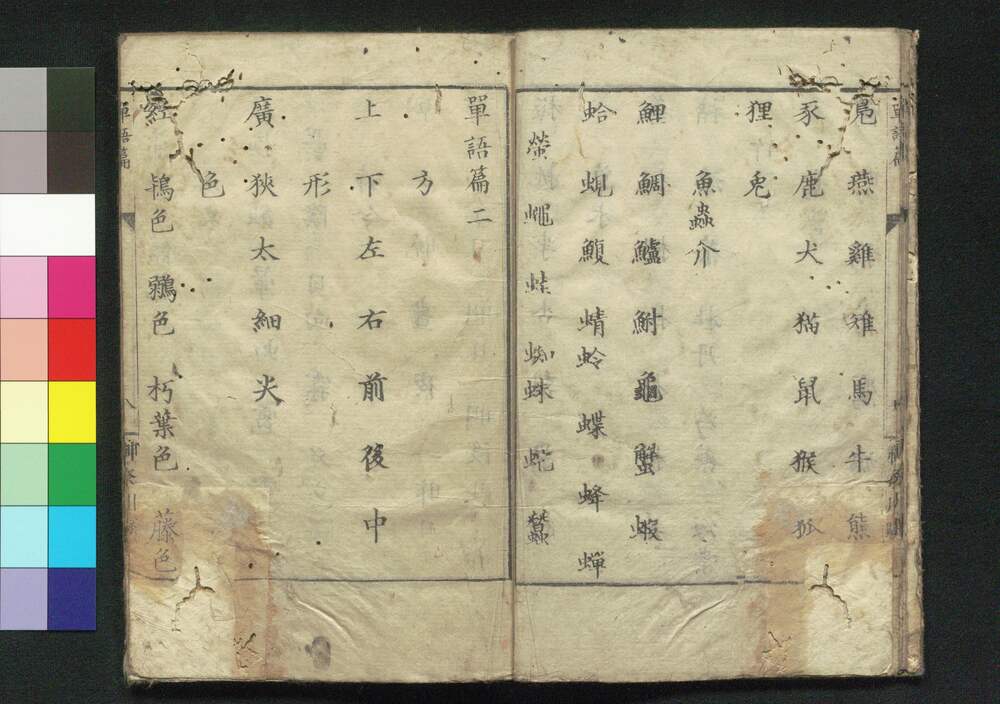 鳬 燕 雞 雉 馬 牛 熊
豕 鹿 犬 猫 鼠 猴 狐
狸 兎
魚蟲介
鯉 鯛 鱸 鮒 龜 蟹 蝦
蛤 蜆 鰒 蜻蛉 蝶 蜂 蝉
螢 蠅 蛙 蜘蛛 蛇 蠶
單語篇二
方
上 下 左 右 前 後 中
形
廣 狹 太 細 尖
色
紅 鴇色 鶸色 朽葉色 藤色
單語篇
八